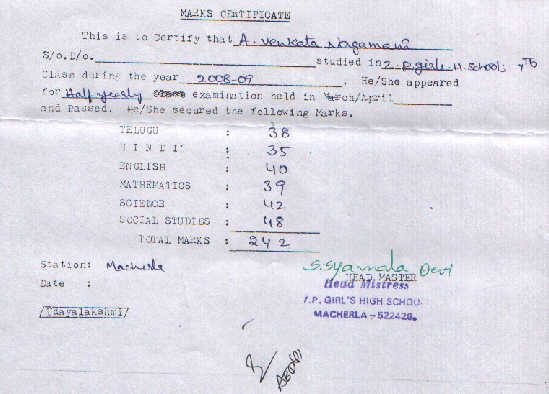 MARKS CERTIFICATE
This is to Certify that A. Venkata Nagamani
S/o.D/o. studied in Z.P. girls H. School, 7th
Class during the year 2008-09. He/She appeared
for Half yearly examination held in March/April
and Passed. He/She secured the following Marks.
TELUGU : 38
HINDI : 35
ENGLISH : 40
MATHEMATICS : 39
SCIENCE : 42
SOCIAL STUDIES : 48
TOTAL MARKS : 242
Station: Macherla
S. Syamala Devi
HEAD MASTER
Date :
Head Mistress
Z.P. GIRL'S HIGH SCHOOL
MACHERLA - 522426.
/Udayalakshmi/